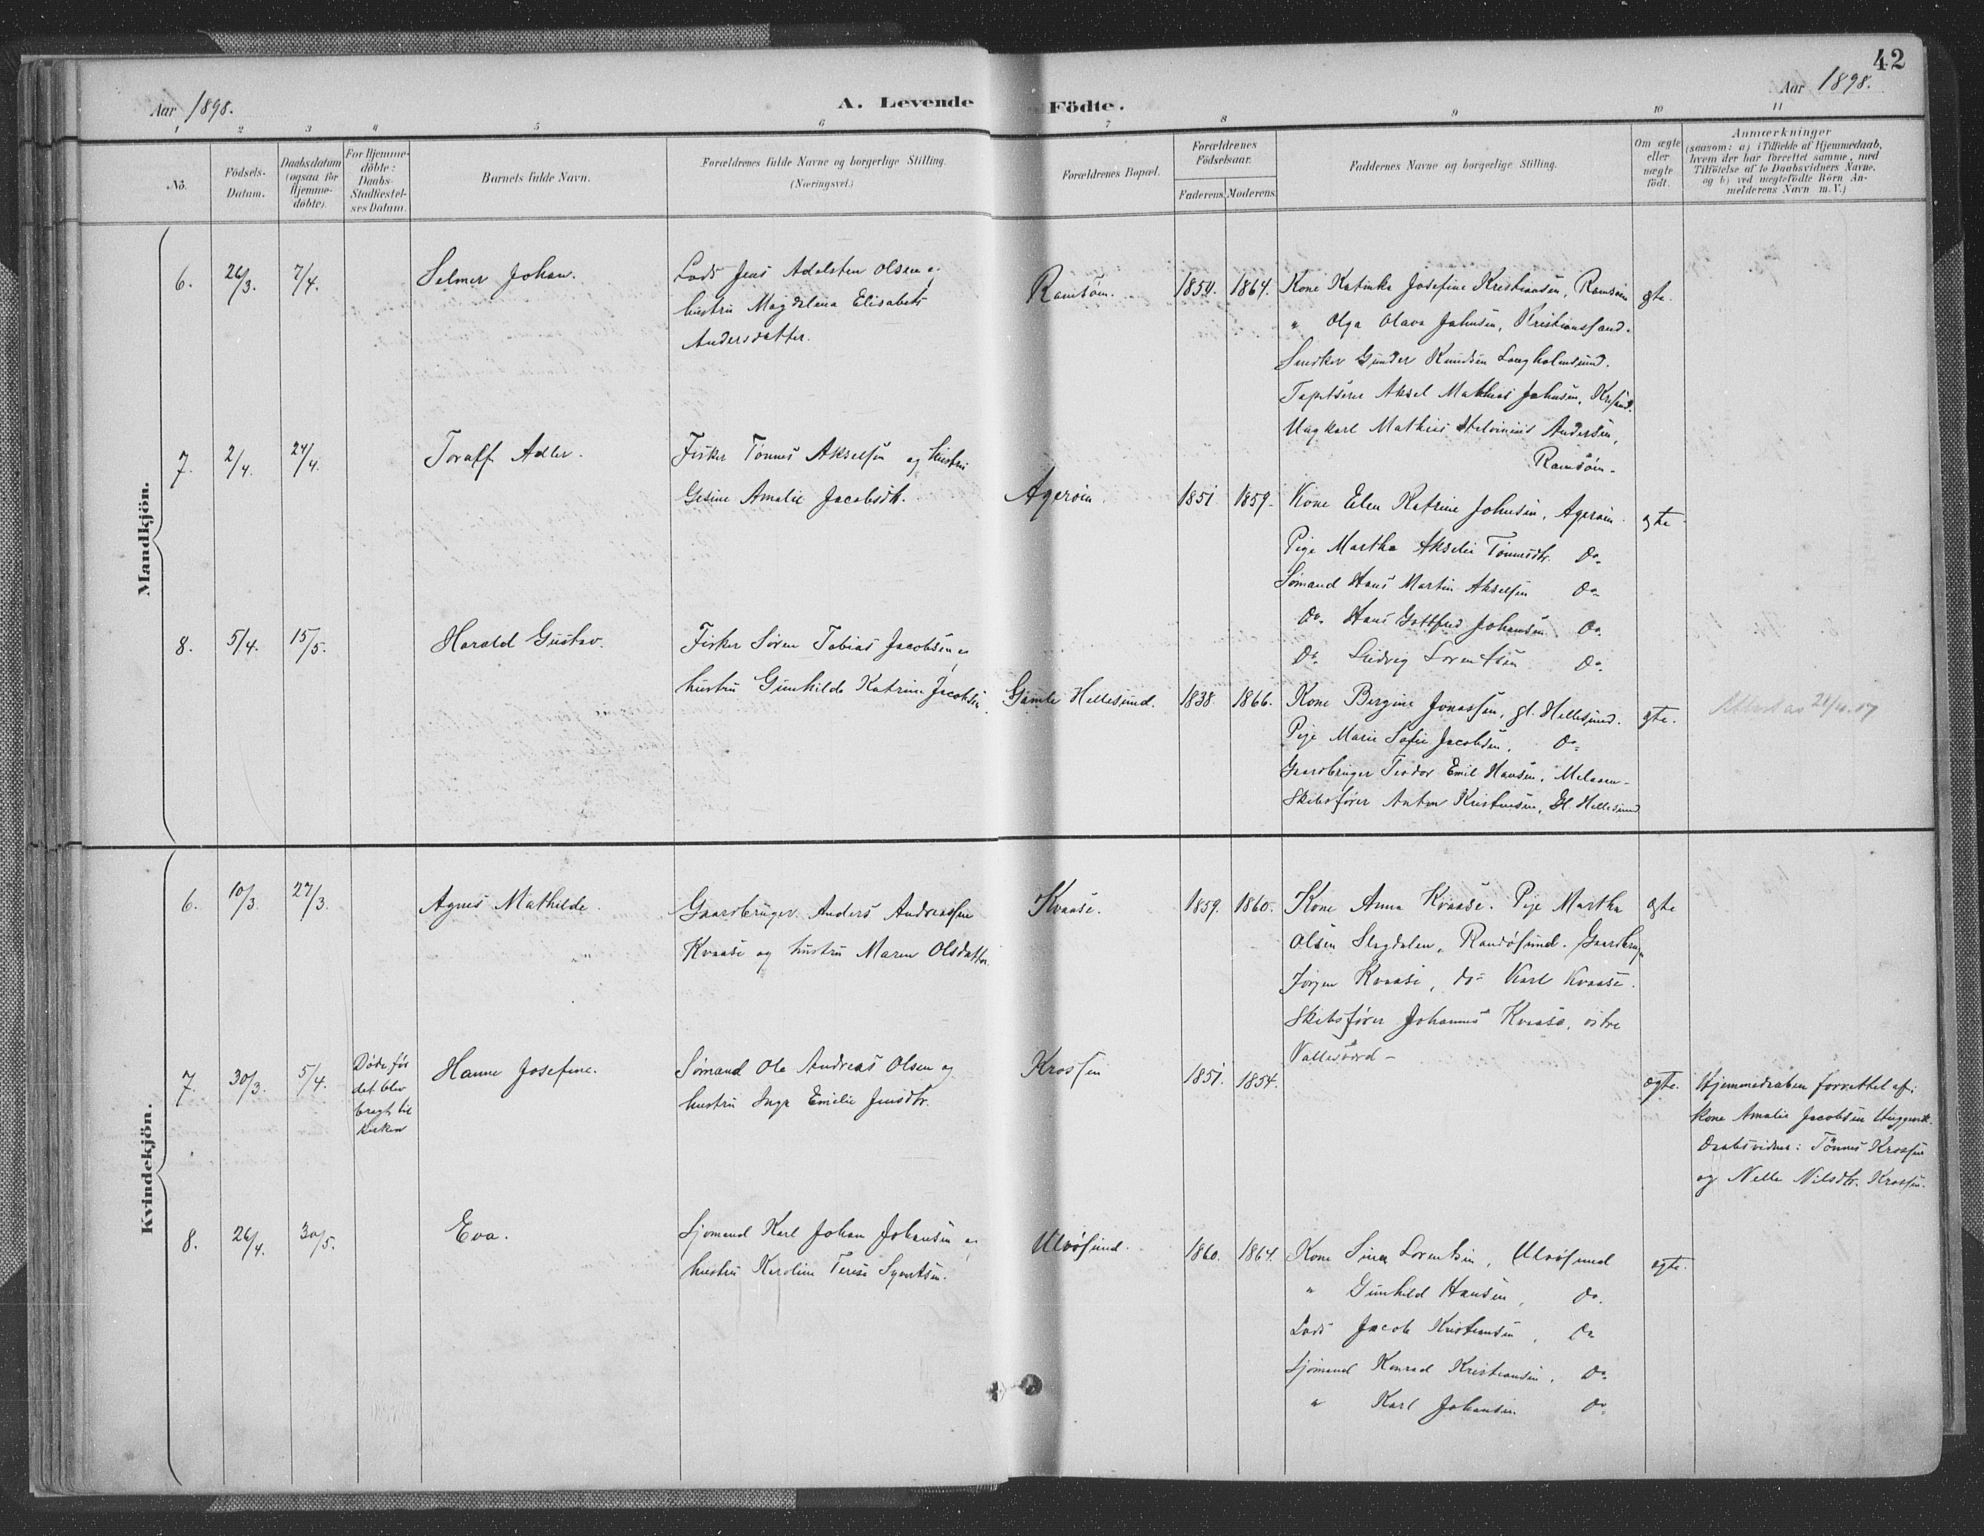 42
Aar 1898.
A. Levende Födte.
Aar 1898.
1 2 3 4 5 6 7 8 9 10 11
No.
Födsels-Datum.
Daabsdatum (ogsaa for Hjemmedöbte).
For Hjemmedöbte: Daabs-Stadfæstelses Datum.
Barnets fulde Navn.
Forældrenes fulde Navne og borgerlige Stilling.
(Næringsvei.)
Forældrenes Bopæl.
Forældrenes Födselsaar.
Faderens. Moderens.
Faddernes Navne og borgerlige Stilling.
Om ægte eller uægte födt.
Anmærkninger
(saasom: a) i Tilfælde af Hjemmedaab,
hvem der har forrettet samme, med
Tilföielse af to Daabsvidners Navne,
og b) ved uægtefödte Börn An-
melderens Navn m. V.)
Mandkjön.
6. 26/3. 7/4. Selmer Johan.
Lods Jens Adelsten Olsen og
hustru Magdalena Elisabeth
Andersdatter.
Ramsöen. 1854. 1864.
Kone Katinka Josefine Kristiansen, Ramsöen
" Olga Olava Johnsen, Kristianssand.
Snedker Gunder Knudsen Langholmsund.
Tapetserer Aksel Mathias Johnsen, Krsand.
Ungkarl Mathias Andersen,
Ramsöen.
ægte.
7. 2/4. 24/4. Toralf Adler.
Fisker Tönnes Akselsen og hustru
Gesine Amalie Jacobsdtr.
Ageröen. 1851. 1859.
Kone Elen Katrine Johnsen, Ageröen.
Pige Martha Akselie Tönnesdtr. Do.
Sømand Hans Martin Akselsen Do.
Do. Hans Gottfred Johansen Do.
Do. Ludvig Lorentsen Do.
ægte.
8. 5/4. 15/5. Harald Gustav.
Fisker Søren Tobias Jacobsen og
hustru Gunhilde Katrine Jacobsen.
Gamle Hellesund. 1838. 1866.
Kone Bergine Jonassen, gl. Hellesund.
Pige Marie Sofie Jacobsen, Do.
Gaardbruger Teodor Emil Hansen,
Skibsfører Anton Kristensen, Gl. Hellesund
ægte.
Kvindekjön.
6. 10/3. 27/3. Agnes Mathilde.
Gaardbruger Anders Andreassen
Kvaase og hustru Maren Olsdatter.
Kvaase. 1859. 1860.
Kone Anna Kvaase. Pige Martha
Olsen Slegdalen, Randösund. Gaardbrug.
Jørgen Kvaase, do. Karl Kvaase.
Skibsfører Johannes Kvaase, vstre
Vallesværd
ægte
7. 30/3. 5/4. Døde før
det blev
bragt til
kirken
Hanne Josefine.
Sømand Ole Andreas Olsen og
hustru Inga Emilie Jensdtr.
Krossen 1851. 1854.
ægte.
Hjemmedaaben forrettet af:
Kone Amalie Jacobsen
Daabsvidner: Tönnes Krossen
og Nelle Nilsdtr. Krossen.
8. 26/4. 30/5. Eva.
Sjømand Karl Johan Johansen og
hustru Karoline Terese Syvertsen.
Ulvösund. 1860. 1864.
Kone Sina Lorentsen, Ulvösund
" Gunhild Hansen, Do.
Lods Jacob Kristiansen, Do
Sjømand Konrad Kristiansen, Do.
" Karl Johansen Do.
ægte.